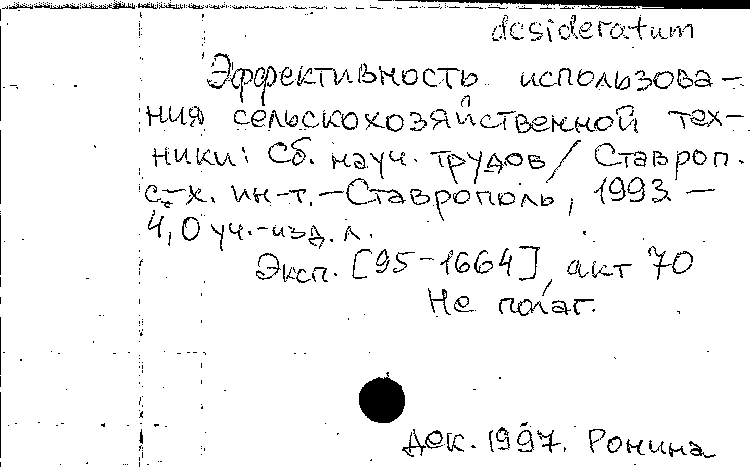 desideratum
Эффективность использова-
ния сельскохозяйственной тех-
ники: Сб. науч. трудов/ Ставроп.
с.-х. ин-т.-Ставрополь, 1993. -
4,0 уч.-изд. л.
Эксп. [95-1664], акт 70
Не полаг.
Дек. 1997. Ронина